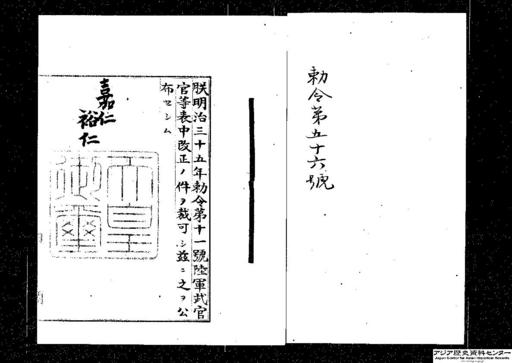 勅令第五十六號
朕明治三十五年勅令第十一號陸軍武官
官等表中改正ノ件ヲ裁可シ茲ニ之ヲ公
布セシム
嘉仁
裕仁
天皇
御璽
アジア歴史資料センター
Japan Center for Asian Historical Records